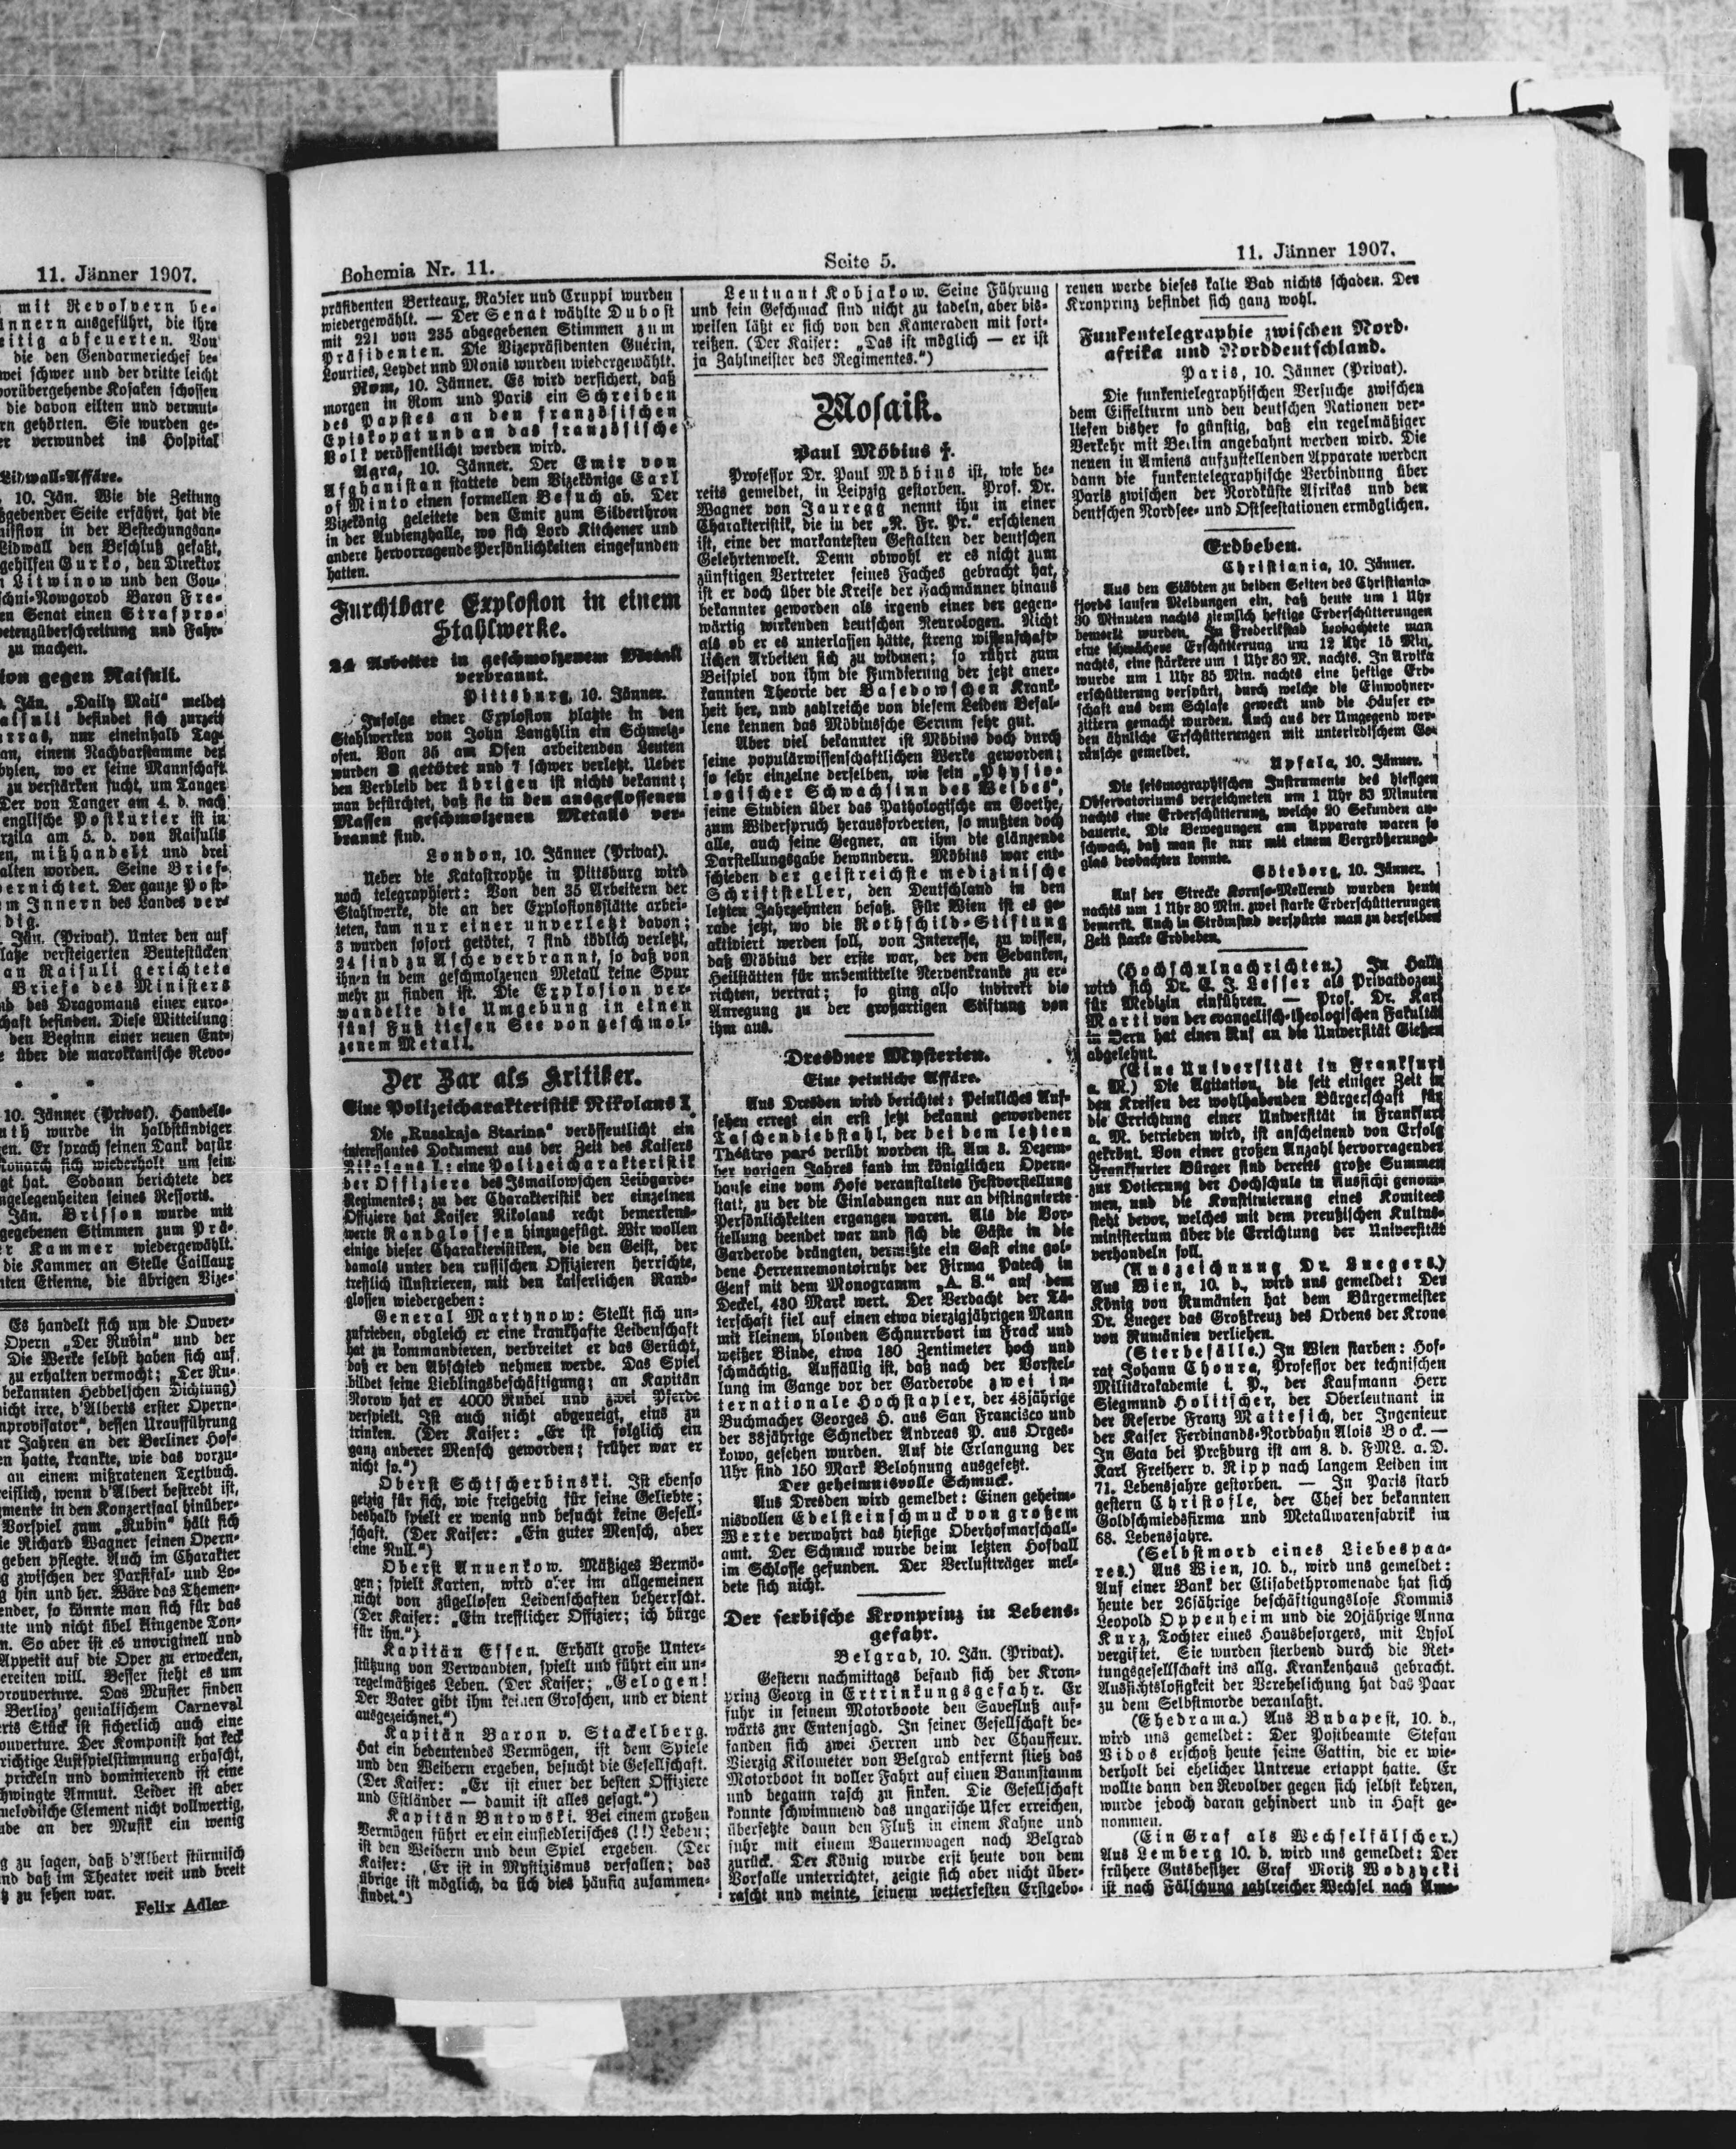 11. Jänner 1907.
mit Revolvern be-
innern ausgeführt, die ihre
eitig abfeuerten. Von
die den Gendarmeriechef be-
wei schwer und der dritte leicht
vorübergehende Kosaken schossen
die davon eilten und vermut-
rn gehörten. Sie wurden ge-
er verwundet ins Hospital
Lidwall-Affäre.
10. Jän. Wie die Zeitung
ßgebender Seite erfährt, hat die
mission in der Bestechungsan-
Lidwall den Beschluß gefaßt,
gehilfen Gurko, den Direktor
Litwinow und den Gou-
schni-Nowgorod Baron Fre-
en Senat einen Strafpro-
petenzüberschreitung und Fahr-
zu machen.
ion gegen Raisuli.
Jän. „Daily Mail" meldet
aisuli befindet sich zurzeit
rras, nur eineinhalb Tag-
an, einem Nachbarstamme der
bylen, wo er seine Mannschaft
zu verstärken sucht, um Tanger
Der von Tanger am 4. d. nach
englische Postkurier ist in
rzila am 5. d. von Raisulis
en, mißhandelt und drei
alten worden. Seine Brief-
vernichtet. Der ganze Post-
m Innern des Landes ver-
dig.
Jän. (Privat). Unter den auf
latze versteigerten Beutestücken
an Raisuli gerichtete
Briefe des Ministers
nd des Dragomans einer euro-
chaft befinden. Diese Mitteilung
den Beginn einer neuen Ent-
über die marokkanische Revo-
10. Jänner (Privat). Handels-
uth wurde in halbstündiger
en. Er sprach seinen Dank dafür
Monarch sich wiederholt um sein
gt hat. Sodann berichtete der
ngelegenheiten seines Ressorts.
Jän. Brisson wurde mit
gegebenen Stimmen zum Prä-
r Kammer wiedergewählt.
die Kammer an Stelle Caillaux
nten Etienne, die übrigen Vize-
Es handelt sich um die Ouver-
Opern „Der Rubin" und der
Die Werke selbst haben sich auf
zu erhalten vermocht; „Der Ru-
bekannten Hebbelschen Dichtung)
nicht irre, d'Alberts erster Opern-
mprovisator", dessen Uraufführung
ar Jahren an der Berliner Hof-
en hatte, krankte, wie das vorzu-
an einem mißratenen Textbuch.
eiflich, wenn d'Albert bestrebt ist,
gmente in den Konzertsaal hinüber-
Vorspiel zum „Rubin" hält sich
ie Richard Wagner seinen Opern-
geben pflegte. Auch im Charakter
g zwischen der Parsifal- und Lo-
g hin und her. Wäre das Themen-
ender, so könnte man sich für das
ute und nicht übel klingende Ton-
n. So aber ist es unoriginell und
Appetit auf die Oper zu erwecken,
ereiten will. Besser steht es um
orouverture. Das Muster finden
Berlioz' genialischem Carneval
erts Stück ist sicherlich auch eine
ouverture. Der Komponist hat keck
richtige Lustspielstimmung erhascht,
prickeln und dominierend ist eine
chwingte Anmut. Leider ist aber
melodische Element nicht vollwertig,
ade an der Musik ein wenig
g zu sagen, daß d'Albert stürmisch
nd daß im Theater weit und breit
tz zu sehen war.
Felix Adler
Bohemia Nr. 11.
Seite 5.
11. Jänner 1907.
präsidenten Berteaux, Rabier und Cruppi wurden
wiedergewählt. — Der Senat wählte Dubost
mit 221 von 235 abgegebenen Stimmen zum
Präsidenten. Die Vizepräsidenten Guérin,
Lourties, Leydet und Monis wurden wiedergewählt.
Rom, 10. Jänner. Es wird versichert, daß
morgen in Rom und Paris ein Schreiben
des Papstes an den französischen
Episkopat und an das französische
Volk veröffentlicht werden wird.
Agra, 10. Jänner. Der Emir von
Afghanistan stattete dem Vizekönige Earl
of Minto einen formellen Besuch ab. Der
Vizekönig geleitete den Emir zum Silberthron
in der Audienzhalle, wo sich Lord Kitchener und
andere hervorragende Persönlichkeiten eingefunden
hatten.
Furchtbare Explosion in einem
Stahlwerke.
24 Arbeiter in geschmolzenem Metall
verbrannt.
Pittsburg, 10. Jänner.
Infolge einer Explosion platzte in den
Stahlwerken von John Langhlin ein Schmelz-
ofen. Von 35 am Ofen arbeitenden Leuten
wurden 3 getötet und 7 schwer verletzt. Ueber
den Verbleib der übrigen ist nichts bekannt;
man befürchtet, daß sie in den ausgeflossenen
Massen geschmolzenen Metalls ver-
brannt sind.
London, 10. Jänner (Privat).
Ueber die Katastrophe in Pittsburg wird
noch telegraphiert: Von den 35 Arbeitern der
Stahlwerke, die an der Explosionsstätte arbei-
teten, kam nur einer unverletzt davon;
3 wurden sofort getötet, 7 sind tödlich verletzt,
24 sind zu Asche verbrannt, so daß von
ihnen in dem geschmolzenen Metall keine Spur
mehr zu finden ist. Die Explosion ver-
wandelte die Umgebung in einen
fünf Fuß tiefen See von geschmol-
zenem Metall.
Der Zar als Kritiker.
Eine Polizeicharakteristik Nikolaus I.
Die „Russkaja Starina" veröffentlicht ein
interessantes Dokument aus der Zeit des Kaisers
Nikolaus I.: eine Polizeicharakteristik
der Offiziere des Ismailowschen Leibgarde-
Regimentes; zu der Charakteristik der einzelnen
Offiziere hat Kaiser Nikolaus recht bemerkens-
werte Randglossen hinzugefügt. Wir wollen
einige dieser Charakteristiken, die den Geist, der
damals unter den russischen Offizieren herrichte,
trefflich illustrieren, mit den kaiserlichen Rand-
glossen wiedergeben:
General Martynow: Stellt sich un-
zufrieden, obgleich er eine krankhafte Leidenschaft
hat zu kommandieren, verbreitet er das Gerücht,
daß er den Abschied nehmen werde. Das Spiel
bildet seine Lieblingsbeschäftigung; an Kapitän
Norow hat er 4000 Rubel und zwei Pferde
verspielt. Ist auch nicht abgeneigt, eins zu
trinken. (Der Kaiser: „Er ist folglich ein
ganz anderer Mensch geworden; früher war er
nicht so.")
Oberst Schtscherbinski. Ist ebenso
geizig für sich, wie freigebig für seine Geliebte;
deshalb spielt er wenig und besucht keine Gesell-
schaft. (Der Kaiser: „Ein guter Mensch, aber
eine Null.")
Oberst Annenkow. Mäßiges Vermö-
gen; spielt Karten, wird aber im allgemeinen
nicht von zügellosen Leidenschaften beherrscht.
(Der Kaiser: „Ein trefflicher Offizier; ich bürge
für ihn.")
Kapitän Essen. Erhält große Unter-
stützung von Verwandten, spielt und führt ein un-
regelmäßiges Leben. (Der Kaiser; „Gelogen!
Der Vater gibt ihm keinen Groschen, und er dient
ausgezeichnet.")
Kapitän Baron v. Stackelberg.
Hat ein bedeutendes Vermögen, ist dem Spiele
und den Weibern ergeben, besucht die Gesellschaft.
(Der Kaiser: „Er ist einer der besten Offiziere
und Estländer — damit ist alles gesagt.")
Kapitän Butowski. Bei einem großen
Vermögen führt er ein einsiedlerisches (!!) Leben;
ist den Weibern und dem Spiel ergeben. (Der
Kaiser: „Er ist in Mystizismus verfallen; das
übrige ist möglich, da sich dies häufig zusammen-
findet.")
Leutnant Kobjakow. Seine Führung
und sein Geschmack sind nicht zu tadeln, aber bis-
weilen läßt er sich von den Kameraden mit fort-
reißen. (Der Kaiser: „Das ist möglich — er ist
ja Zahlmeister des Regimentes.")
Mosaik.
Paul Möbius †.
Professor Dr. Paul Möbius ist, wie be-
reits gemeldet, in Leipzig gestorben. Prof. Dr.
Wagner von Jauregg nennt ihn in einer
Charakteristik, die in der „N. Fr. Pr." erschienen
ist, eine der markantesten Gestalten der deutschen
Gelehrtenwelt. Denn obwohl er es nicht zum
zünftigen Vertreter seines Faches gebracht hat,
ist er doch über die Kreise der Fachmänner hinaus
bekannter geworden als irgend einer der gegen-
wärtig wirkenden deutschen Neurologen. Nicht
als ob er es unterlassen hätte, streng wissenschaft-
lichen Arbeiten sich zu widmen; so rührt zum
Beispiel von ihm die Fundierung der jetzt aner-
kannten Theorie der Basedowschen Krank-
heit her, und zahlreiche von diesem Leiden Befal-
lene kennen das Möbiussche Serum sehr gut.
Aber viel bekannter ist Möbius doch durch
seine populärwissenschaftlichen Werke geworden;
so sehr einzelne derselben, wie sein „Physio-
logischer Schwachsinn des Weibes",
seine Studien über das Pathologische an Goethe,
zum Widerspruch herausforderten, so mußten doch
alle, auch seine Gegner, an ihm die glänzende
Darstellungsgabe bewundern. Möbius war ent-
schieden der geistreichste medizinische
Schriftsteller, den Deutschland in den
letzten Jahrzehnten besaß. Für Wien ist es ge-
rade jetzt, wo die Rothschild-Stiftung
aktiviert werden soll, von Interesse, zu wissen,
daß Möbius der erste war, der den Gedanken,
Heilstätten für unbemittelte Nervenkranke zu er-
richten, vertrat; so ging also indirekt die
Anregung zu der großartigen Stiftung von
ihm aus.
Dresdner Mysterien.
Eine peinliche Affäre.
Aus Dresden wird berichtet: Peinliches Auf-
sehen erregt ein erst jetzt bekannt gewordener
Taschendiebstahl, der bei dem letzten
Théâtre paré verübt worden ist. Am 8. Dezem-
ber vorigen Jahres fand im königlichen Opern-
hause eine vom Hofe veranstaltete Festvorstellung
statt, zu der die Einladungen nur an distinguierte
Persönlichkeiten ergangen waren. Als die Vor-
stellung beendet war und sich die Gäste in die
Garderobe drängten, vermißte ein Gast eine gol-
dene Herrenremontoiruhr der Firma Patech in
Genf mit dem Monogramm „A. S." auf dem
Deckel, 430 Mark wert. Der Verdacht der Tä-
terschaft fiel auf einen etwa vierzigjährigen Mann
mit kleinem, blonden Schnurrbart im Frack und
weißer Binde, etwa 180 Zentimeter hoch und
schmächtig. Auffällig ist, daß nach der Vorstel-
lung im Gange vor der Garderobe zwei in-
ternationale Hochstapler, der 48jährige
Buchmacher Georges H. aus San Francisco und
der 38jährige Schneider Andreas P. aus Orges-
kowo, gesehen wurden. Auf die Erlangung der
Uhr sind 150 Mark Belohnung ausgesetzt.
Der geheimnisvolle Schmuck.
Aus Dresden wird gemeldet: Einen geheim-
nisvollen Edelsteinschmuck von großem
Werte verwahrt das hiesige Oberhofmarschall-
amt. Der Schmuck wurde beim letzten Hofball
im Schlosse gefunden. Der Verlustträger mel-
dete sich nicht.
Der serbische Kronprinz in Lebens-
gefahr.
Belgrad, 10. Jän. (Privat).
Gestern nachmittags befand sich der Kron-
prinz Georg in Ertrinkungsgefahr. Er
fuhr in seinem Motorboote den Savefluß auf-
wärts zur Entenjagd. In seiner Gesellschaft be-
fanden sich zwei Herren und der Chauffeur.
Vierzig Kilometer von Belgrad entfernt stieß das
Motorboot in voller Fahrt auf einen Baumstamm
und begann rasch zu sinken. Die Gesellschaft
konnte schwimmend das ungarische Ufer erreichen,
übersetzte dann den Fluß in einem Kahne und
fuhr mit einem Bauernwagen nach Belgrad
zurück. Der König wurde erst heute von dem
Vorfalle unterrichtet, zeigte sich aber nicht über-
rascht und meinte, seinem wetterfesten Erstgebo-
renen werde dieses kalte Bad nichts schaden. Der
Kronprinz befindet sich ganz wohl.
Funkentelegraphie zwischen Nord-
afrika und Norddeutschland.
Paris, 10. Jänner (Privat).
Die funkentelegraphischen Versuche zwischen
dem Eiffelturm und den deutschen Nationen ver-
liefen bisher so günstig, daß ein regelmäßiger
Verkehr mit Berlin angebahnt werden wird. Die
neuen in Amiens aufzustellenden Apparate werden
dann die funkentelegraphische Verbindung über
Paris zwischen der Nordküste Afrikas und den
deutschen Nordsee- und Ostseestationen ermöglichen.
Erdbeben.
Christiania, 10. Jänner.
Aus den Städten zu beiden Seiten des Christiania-
fjords laufen Meldungen ein, daß heute um 1 Uhr
30 Minuten nachts ziemlich heftige Erderschütterungen
bemerkt wurden. In Frederikstad beobachtete man
eine schwächere Erschütterung um 12 Uhr 15 Min.
nachts, eine stärkere um 1 Uhr 30 M. nachts. In Arvika
wurde um 1 Uhr 35 Min. nachts eine heftige Erd-
erschütterung verspürt, durch welche die Einwohner-
schaft aus dem Schlafe geweckt und die Häuser er-
zittern gemacht wurden. Auch aus der Umgegend wer-
den ähnliche Erschütterungen mit unterirdischem Ge-
räusche gemeldet.
Upsala, 10. Jänner.
Die seismographischen Instrumente des hiesigen
Observatoriums verzeichneten um 1 Uhr 33 Minuten
nachts eine Erderschütterung, welche 20 Sekunden an-
dauerte. Die Bewegungen am Apparate waren so
schwach, daß man sie nur mit einem Vergrößerungs-
glas beobachten konnte.
Göteborg, 10. Jänner.
Auf der Strecke Kornsö-Mellerud wurden heute
nachts um 1 Uhr 30 Min. zwei starke Erderschütterungen
bemerkt. Auch in Strömstad verspürte man zu derselben
Zeit starke Erdbeben.
(Hochschulnachrichten.) In Halle
wird sich Dr. E. J. Lesser als Privatdozent
für Medizin einführen. — Prof. Dr. Karl
Marti von der evangelisch-theologischen Fakultät
in Bern hat einen Ruf an die Universität Gießen
abgelehnt.
(Eine Universität in Frankfurt
a. M.) Die Agitation, die seit einiger Zeit in
den Kreisen der wohlhabenden Bürgerschaft für
die Errichtung einer Universität in Frankfurt
a. M. betrieben wird, ist anscheinend von Erfolg
gekrönt. Von einer großen Anzahl hervorragender
Frankfurter Bürger sind bereits große Summen
zur Dotierung der Hochschule in Aussicht genom-
men, und die Konstituierung eines Komitees
steht bevor, welches mit dem preußischen Kultus-
ministerium über die Errichtung der Universität
verhandeln soll.
(Auszeichnung Dr. Luegers.)
Aus Wien, 10. d., wird uns gemeldet: Der
König von Rumänien hat dem Bürgermeister
Dr. Lueger das Großkreuz des Ordens der Krone
von Rumänien verliehen.
(Sterbefälle.) In Wien starben: Hof-
rat Johann Choura, Professor der technischen
Militärakademie i. P., der Kaufmann Herr
Siegmund Holitscher, der Oberleutnant in
der Reserve Franz Mattesich, der Ingenieur
der Kaiser Ferdinands-Nordbahn Alois Bock. —
In Gata bei Preßburg ist am 8. d. FML. a. D.
Karl Freiherr v. Ripp nach langem Leiden im
71. Lebensjahre gestorben. — In Paris starb
gestern Christofle, der Chef der bekannten
Goldschmiedsfirma und Metallwarenfabrik im
68. Lebensjahre.
(Selbstmord eines Liebespaa-
res.) Aus Wien, 10. d., wird uns gemeldet:
Auf einer Bank der Elisabethpromenade hat sich
heute der 26jährige beschäftigungslose Kommis
Leopold Oppenheim und die 20jährige Anna
Kurz, Tochter eines Hausbesorgers, mit Lysol
vergiftet. Sie wurden sterbend durch die Ret-
tungsgesellschaft ins allg. Krankenhaus gebracht.
Aussichtslosigkeit der Verehelichung hat das Paar
zu dem Selbstmorde veranlaßt.
(Ehedrama.) Aus Budapest, 10. d.,
wird uns gemeldet: Der Postbeamte Stefan
Vidos erschoß heute seine Gattin, die er wie-
derholt bei ehelicher Untreue ertappt hatte. Er
wollte dann den Revolver gegen sich selbst kehren,
wurde jedoch daran gehindert und in Haft ge-
nommen.
(Ein Graf als Wechselfälscher.)
Aus Lemberg 10. d. wird uns gemeldet: Der
frühere Gutsbesitzer Graf Moritz Wodzycki
ist nach Fälschung zahlreicher Wechsel nach Ame-